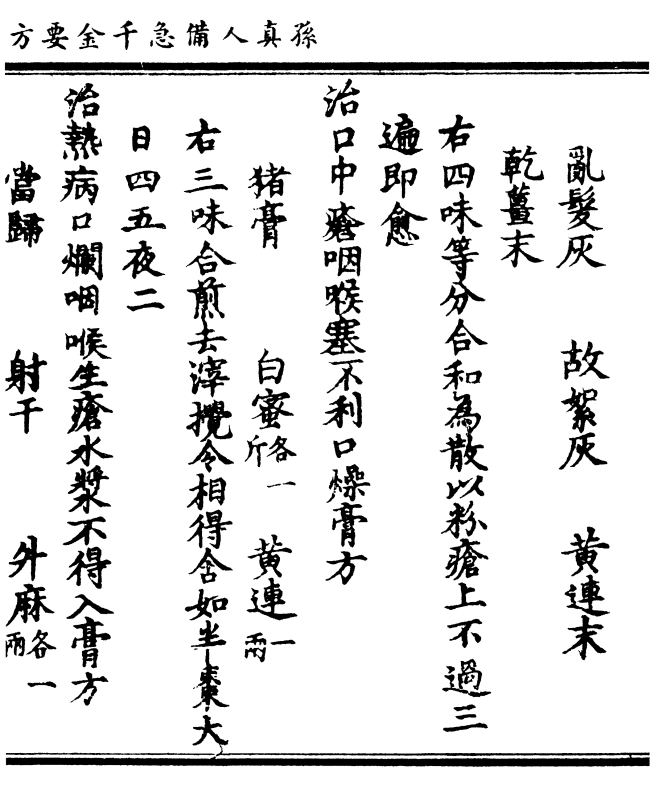 孫真人備急千金要方
亂髮灰 故絮灰 黃連末
乾薑末
右四味等分合和為散以粉瘡上不過三
遍即愈
治口中瘡咽喉塞不利口燥膏方
猪膏 白蜜各一斤 黃連一兩
右三味合煎去滓攪令相得含如半棗大
日四五夜二
治熱病口爛咽喉生瘡水漿不得入膏方
當歸 射干 升麻各一兩